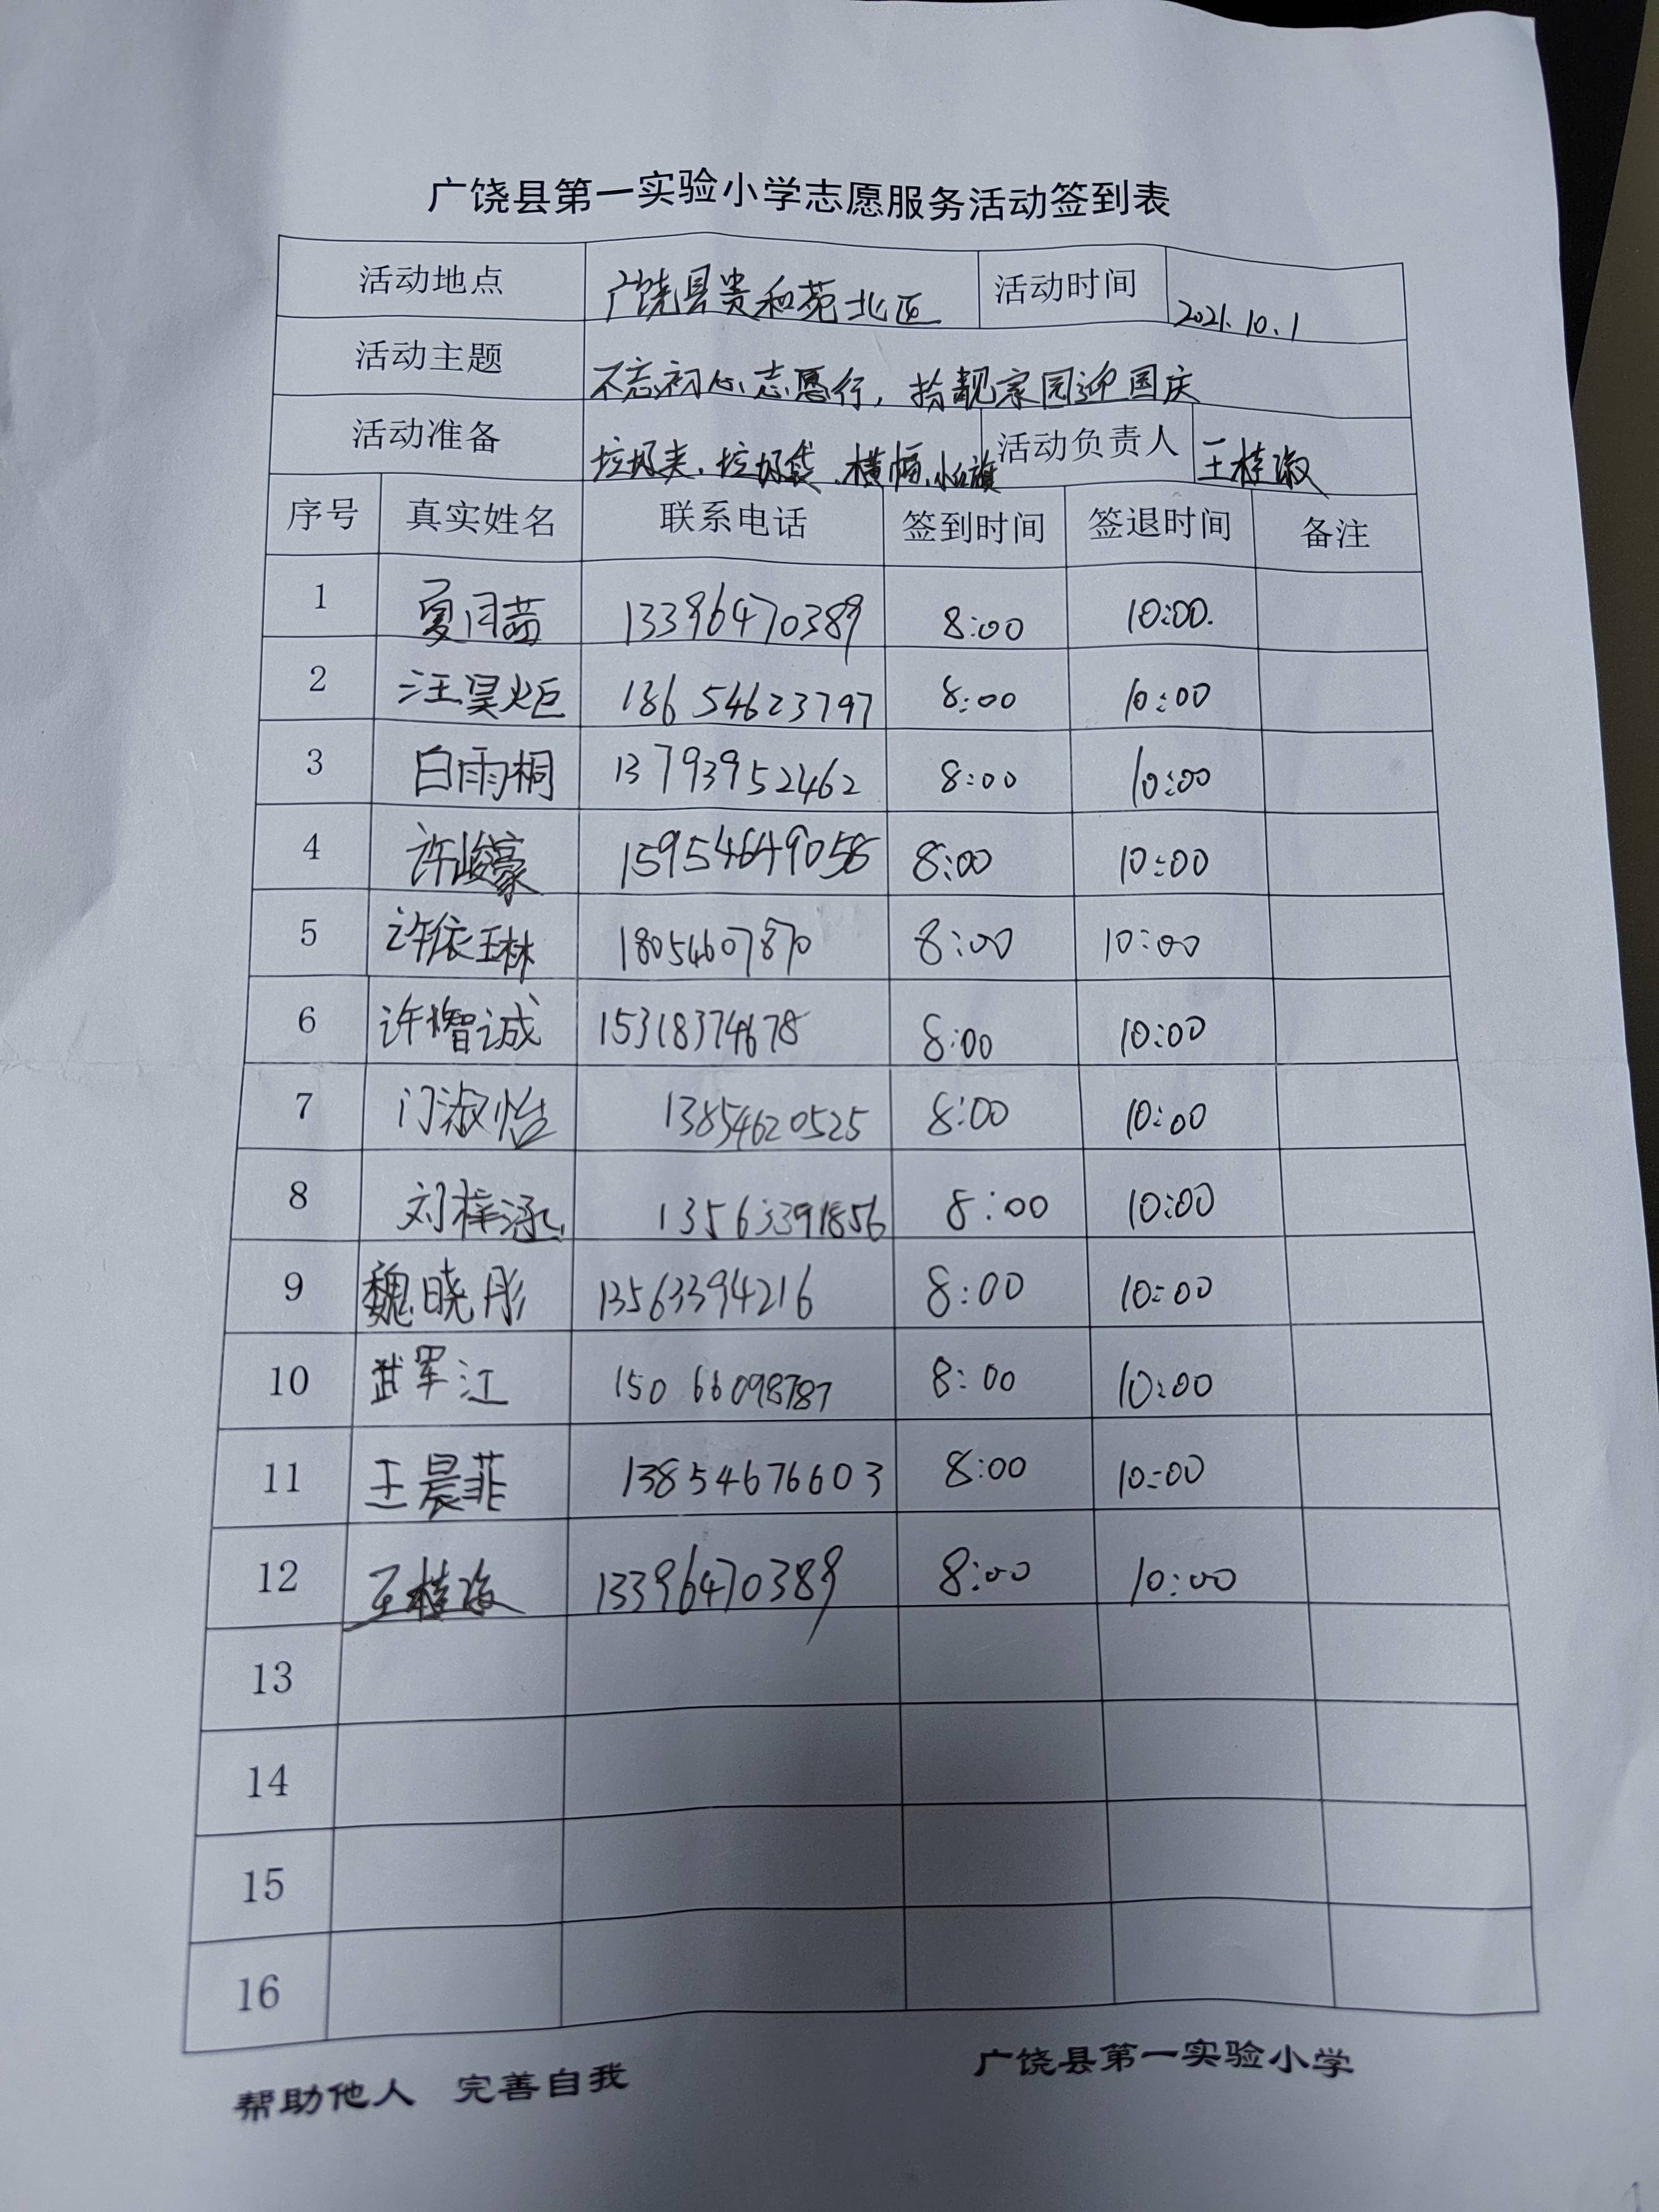 广饶县第一实验小学志愿服务活动签到表
活动地点 广饶县贵和苑北区 活动时间 2021.10.1
活动主题 不忘初心志愿行，拾靓家园迎国庆
活动准备 垃圾夹、垃圾袋、横幅、小红旗 活动负责人 王桂淑
序号 真实姓名 联系电话 签到时间 签退时间 备注
1 夏闫茜 13396470389 8:00 10:00.
2 汪昊炬 18654623797 8:00 10:00
3 白雨桐 13793952462 8:00 10:00
4 许峻豪 15954649058 8:00 10:00
5 许依琳 18054607870 8:00 10:00
6 许智诚 15318374678 8:00 10:00
7 门淑怡 13854620525 8:00 10:00
8 刘梓涵 13563391856 8:00 10:00
9 魏晓彤 13563394216 8:00 10:00
10 武军江 15066098787 8:00 10:00
11 王晨菲 13854676603 8:00 10:00
12 王桂淑 13396470389 8:00 10:00
13
14
15
16
帮助他人 完善自我 广饶县第一实验小学